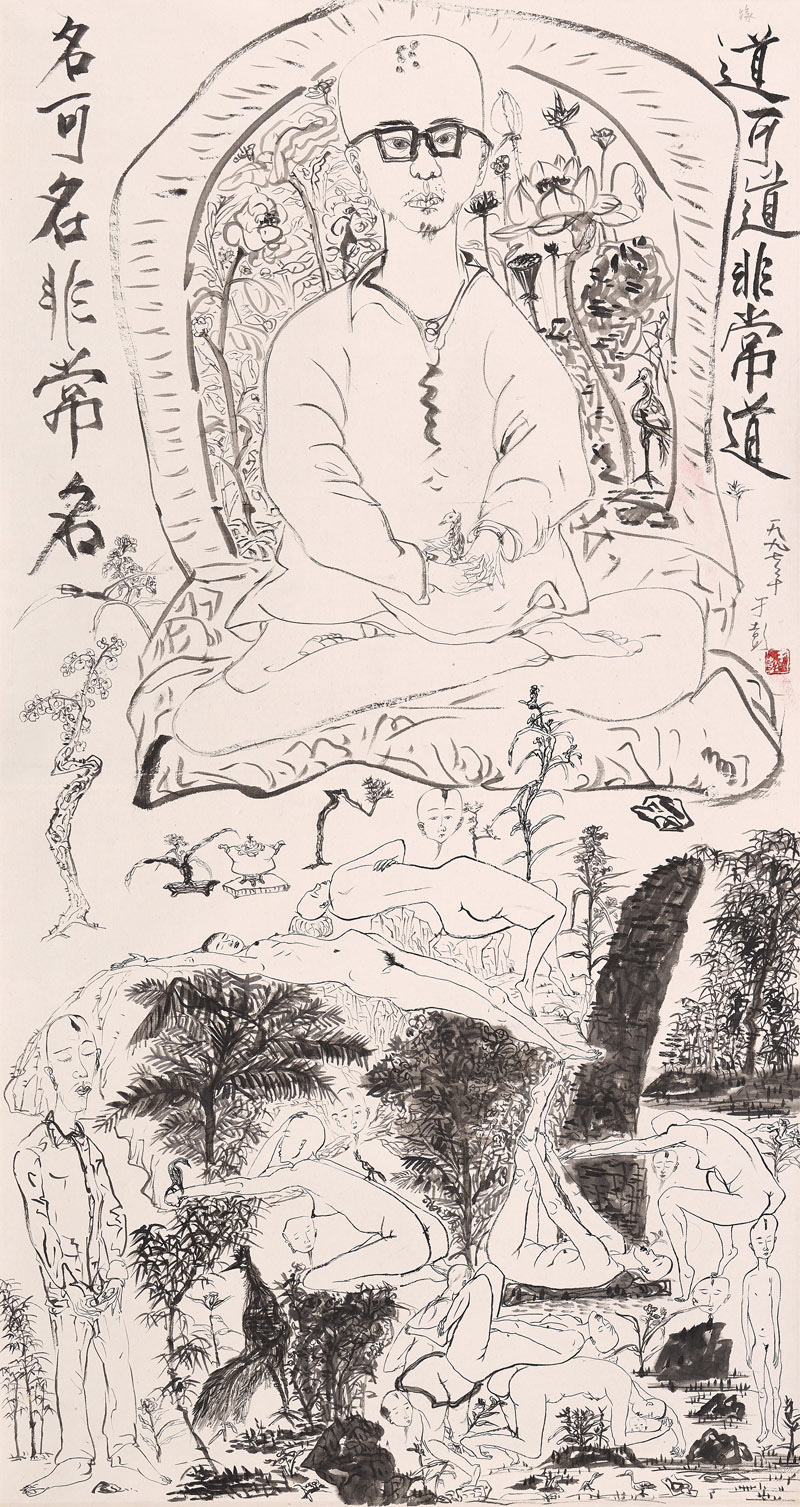 道可道非常道
一九九七年 于彭
名可名非常名